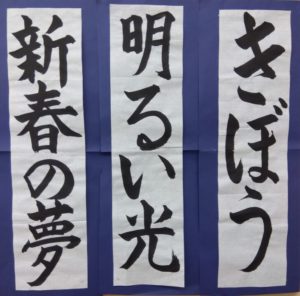 きぼう
明るい光
新春の夢